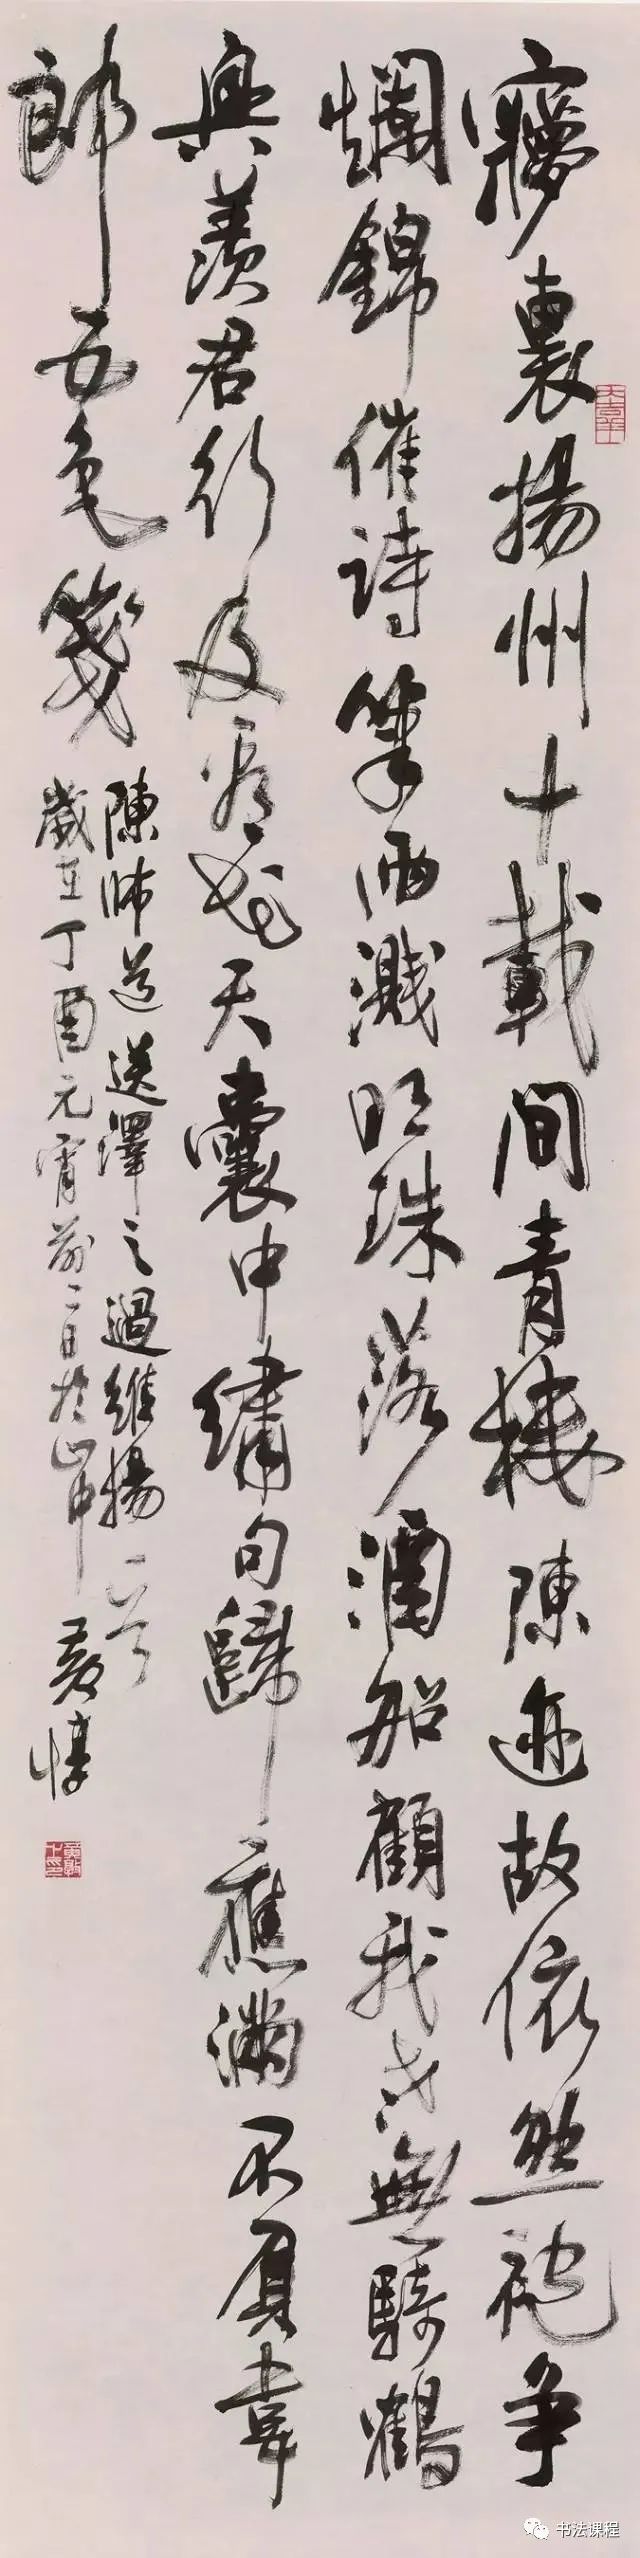 寱裏揚州十載間青樓陳迹故依然袍争
爛錦催詩筆酒濺明珠落酒船顧我老無騎鶴
興羨君行及看花天囊中繡句歸應滿不負韋
郎五色箋
陳師道送澤之過維揚一首
歲在丁酉元宵前二日於山中 黄惇
书法课程